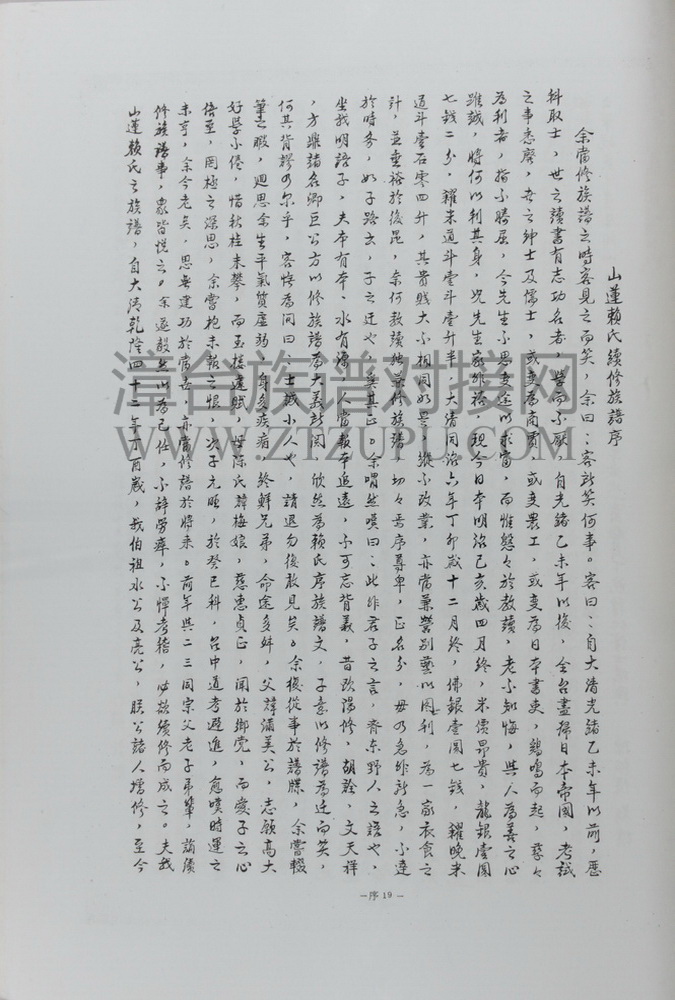 山蓮賴氏續修族譜序
余當修族譜之時客見之而笑，余曰：客所笑何事。客曰：自大清光緒乙未年以前，歷
科取士，世之讀書有志功名者，學而不厭，自光緒乙未年以後，全台盡歸日本帝國，考試
之事悉廢，世之紳士及儒士，或變為商賈，或變農工，或變為日本書吏，鷄鳴而起，孳々
為利者，指不勝屈，今先生不思變途以求富，而惟慇々於教讀，老不知悔，與人為善之心
雖誠，將何以利其身，况先生家非裕，現今日本明治己亥歲四月終，米價昂貴，龍銀壹圓
七錢二分，糶米道斗壹斗壹升半，大清同治六年丁卯歲十二月終，佛銀壹圓七錢，糶晚米
道斗壹石零四升，其貴賤大小相同如是，縱不改業，亦當兼營別藝以圖利，為一家衣食之
計，並垂裕於後昆，余何教讀兼修族譜，切々焉序尊卑，正名分，毋乃急非所急，不達
於時務，如子路云，子之迂也，奚其正。余喟然嘆曰：此非君子之言，齊東野人之語也，
坐我明語子，夫木有本、水有源，人當報本追遠，不可忘背義，昔歐陽修，胡銓，文天祥
，方樂諸名卿巨公方以修族譜為大義所關，欣然為賴氏序族譜文，子意以修譜為迂而笑，
何其背謬乃尔乎，客悔為間曰：士誠小人也，請退勿復敢見矣。余復從事於譜牒，余嘗輟
筆之暇，廻思余生平氣質虛弱，身多疾病，終鮮兄弟，命途多舛，父諱滿美公，志願高大
好學不倦，惜秋桂未攀，而玉樓遽賦，母陳氏諱梅娘，慈惠貞正，聞於鄉党，而愛子之心
倍至，罔極之深思，余嘗抱未報之恨，次子元頤，於癸巳科，台中道考選進，愈嘆時運之
未亨，余今老矣，思無建功於當世，亦當修譜於將來。前年與二三同宗父老子弟輩，論續
修族譜事，衆皆悅之。余遂毅然以為己任，不辭勞瘁，不憚考稽，必欲續修而成之。夫我
山蓮賴氏之族譜，自大清乾隆四十二年丁酉歲，我伯祖水公及亮公，朕公諸人增修，至今
－序19－
漳台族谱对接网
WWW.ZTZUPU.COM